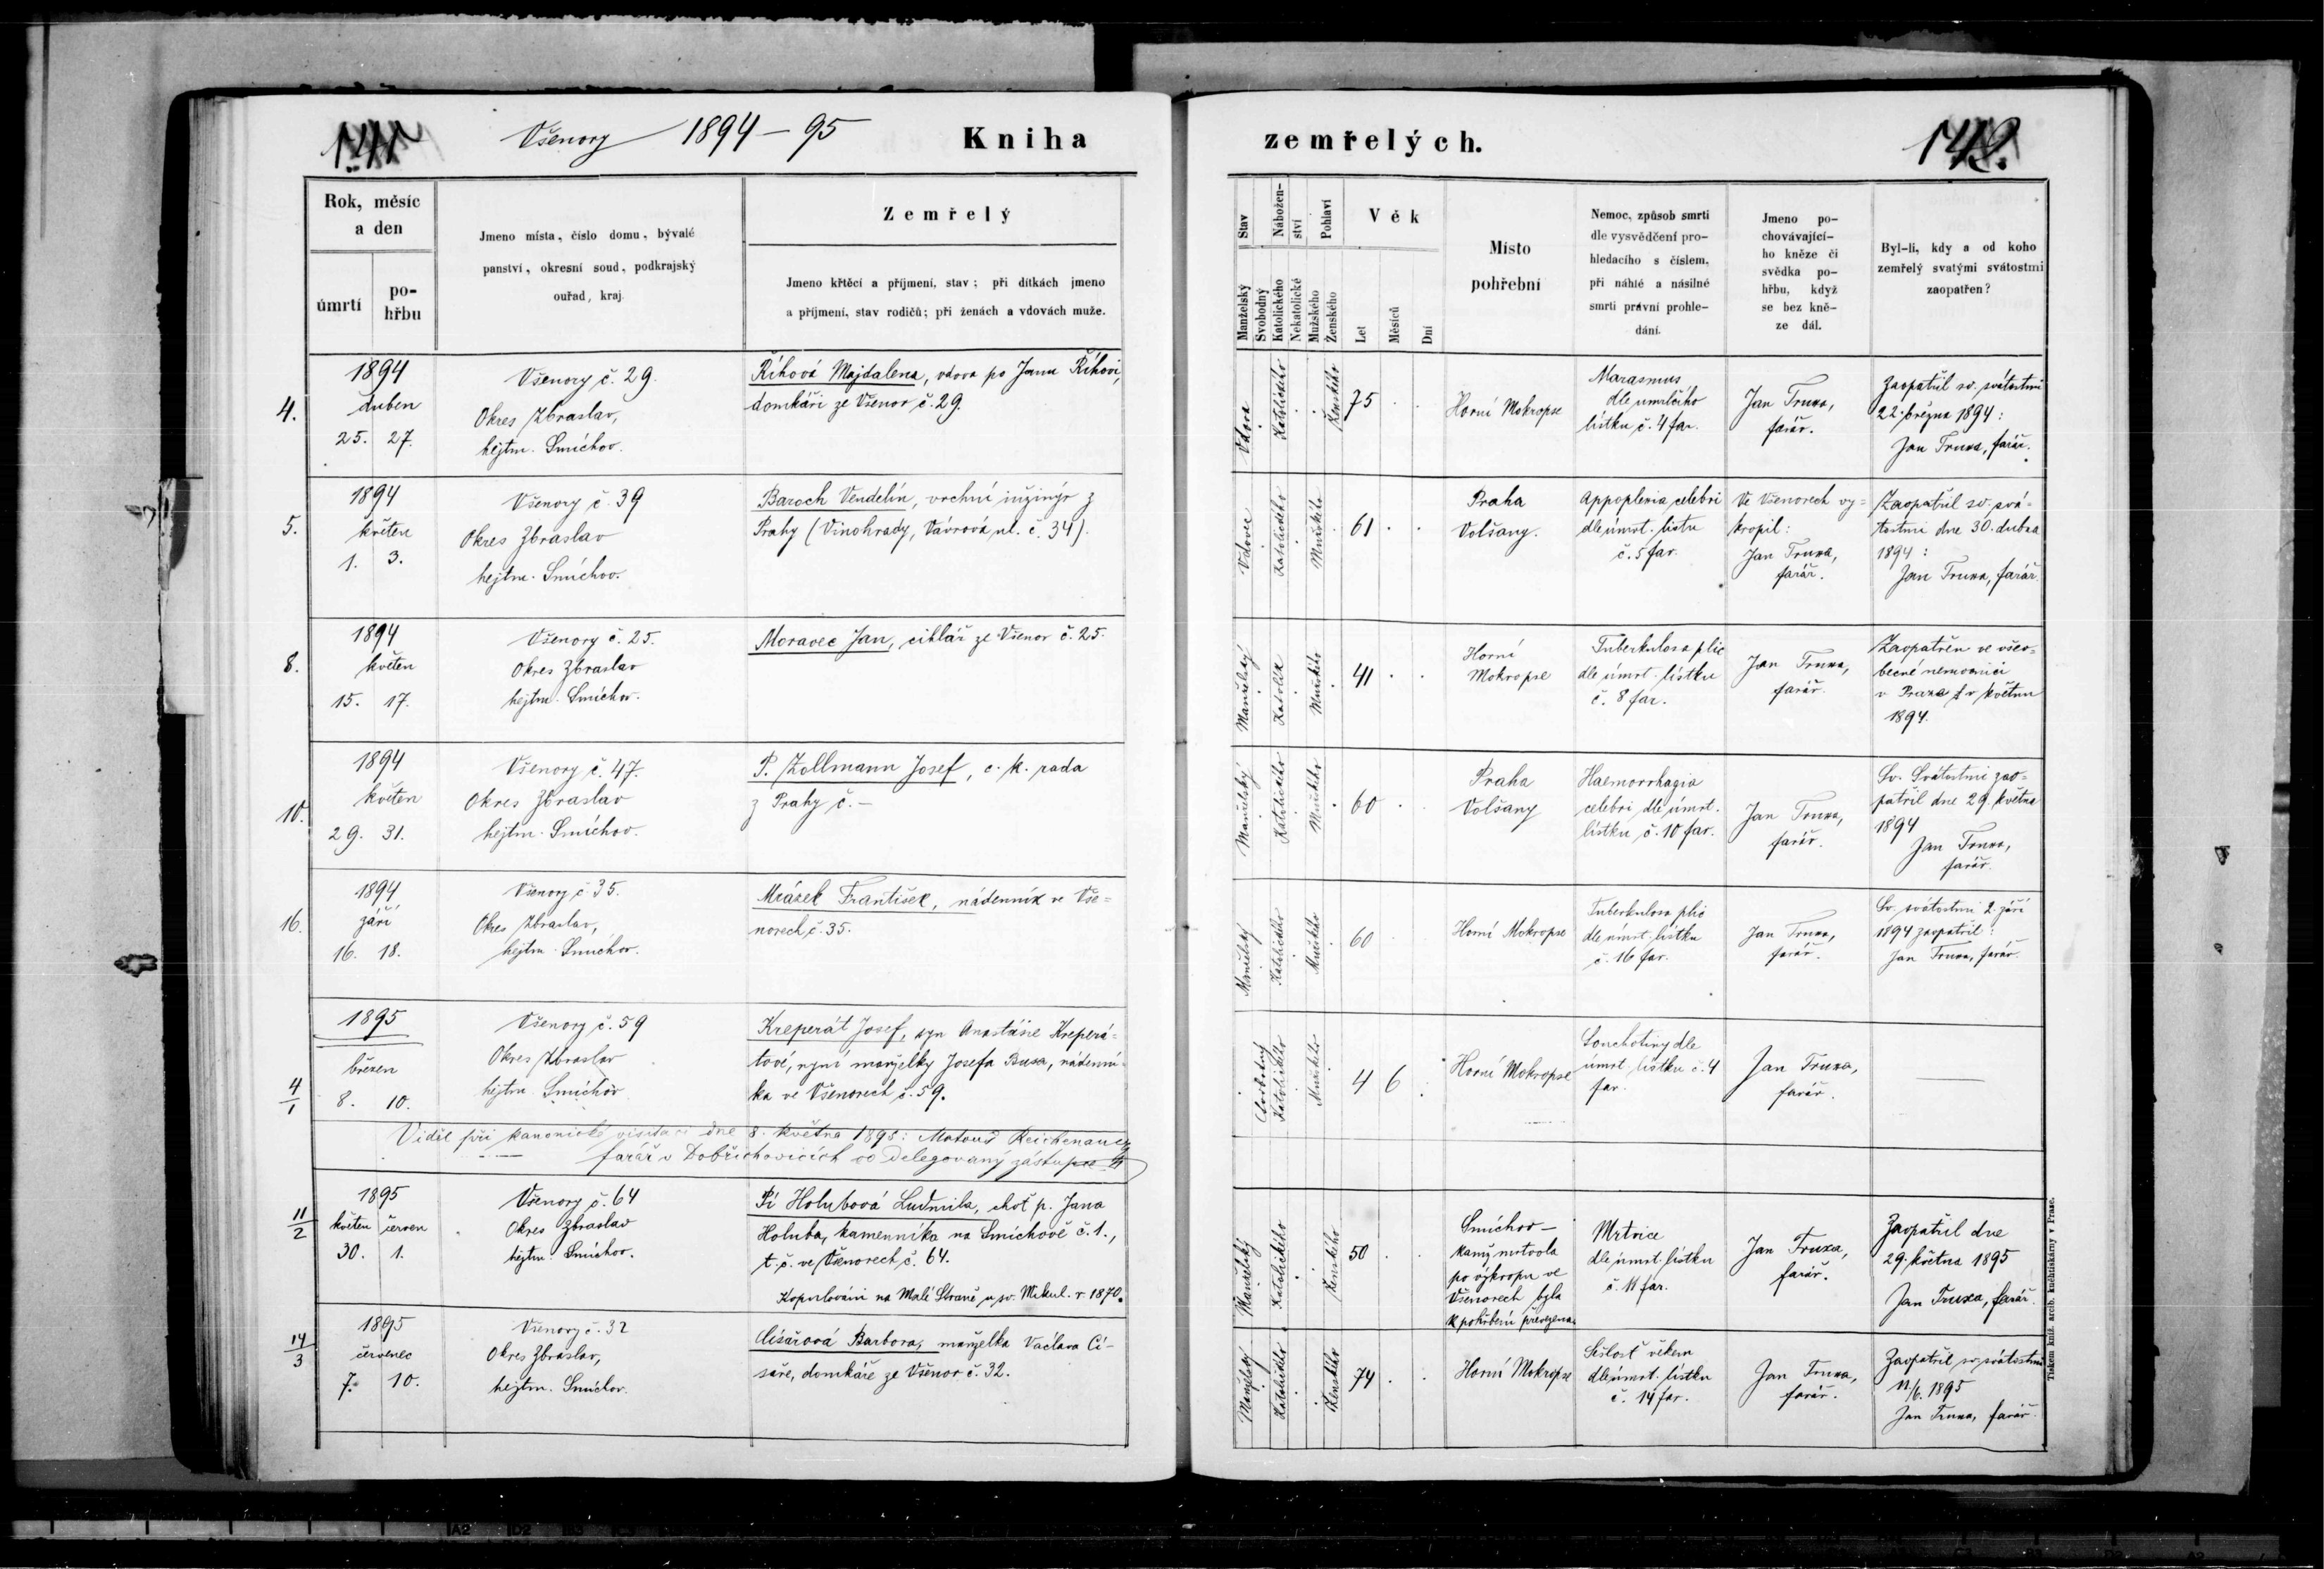 141
Všenory 1894-95
Kniha
Rok, měsíc
a den
úmrtí
po-
hřbu
Jmeno místa, číslo domu, bývalé
panství, okresní soud, podkrajský
ouřad, kraj.
Zemřelý
Jmeno křtěcí a příjmení, stav; při dítkách jmeno
a příjmení, stav rodičů; při ženách a vdovách muže.
4.
1894
duben
25. 27.
Všenory č. 29.
Okres Zbraslav,
hejtm. Smíchov.
Říhová Majdalena, vdova po Janu Říhovi,
domkáři ze Všenor č. 29.
5.
1894
květen
1. 3.
Všenory č. 39
Okres Zbraslav
hejtm. Smíchov.
Baroch Vendelín, vrchní inžinýr z
Prahy (Vinohrady, Vávrová ul. č. 34).
8.
1894
květen
15. 17.
Všenory č. 25.
Okres Zbraslav
hejtm. Smíchov.
Moravec Jan, cihlář ze Všenor č. 25.
10.
1894
květen
29. 31.
Všenory č. 47.
Okres Zbraslav
hejtm. Smíchov.
P. Zollmann Josef, c. k. rada
z Prahy č. -
16.
1894
září
16. 18.
Všenory č 35.
Okres Zbraslav,
hejtm. Smíchov.
Mrázek František, nádenník ve Vše=
norech č. 35.
4/1
1895
březen
8. 10.
Všenory č. 59
Okres Zbraslav
hejtm. Smíchov
Kreperát Josef, syn Anastásie Kreperá-
tové, nyní manželky Josefa Busa, nádenní-
ka ve Všenorech č. 59.
Viděl při kanonické visitaci dne 8. května 1895: Matouš
farář v Dobřichovicích co delegovaný zástupce
11/2
1895
květen červen
30. 1.
Všenory č. 64
Okres Zbraslav
hejtm. Smíchov.
Pí Holubová Ludmila, choť p. Jana
Holuba, kamenníka na Smíchově č. 1.,
t. č. ve Všenorech č. 64.
Kopulováni na Malé Straně u sv. Mikul. r 1870.
14/3
1895
červenec
7. 10.
Všenory č. 32
Okres Zbraslav,
hejtm. Smíchov.
Císařová Barbora, manželka Václava Cí-
saře, domkáře ze Všenor č. 32.
zemřelých.
142.
Stav
Nábožen-
ství
Pohlaví
Věk
Manželský
Svobodný
Katolického
Nekatolické
Mužského
Ženského
Let
Měsíců
Dní
Místo
pohřební
Nemoc, způsob smrti
dle vysvědčení pro-
hledacího s číslem,
při náhlé a násilné
smrti právní prohle-
dání.
Jmeno po-
chovávající-
ho kněze či
svědka po-
hřbu, když
se bez kně-
ze dál.
Byl-li, kdy a od koho
zemřelý svatými svátostmi
zaopatřen?
Vdova
Katolického
Ženského
75
Horní Mokropse
Marasmus
dle umrlčího
lístku č. 4 far.
Jan Truxa,
farář.
Zaopatřil sv. svátostmi
22. března 1894:
Jan Truxa, farář.
Vdovec
Katolického
Mužského
61
Praha
Volšany.
Appoplexia celebri
dle úmrt. listu
č. 5 far.
Ve Všenorech vy=
kropil:
Jan Truxa,
farář.
Zaopatřil sv. svá-
tostmi dne 30. dubna
1894:
Jan Truxa, farář.
Manželský
Mužského
41
Horní
Mokropse
Tuberkulosa plic
dle úmrt. lístku
č. 8 far.
Jan Truxa,
farář.
Zaopatřen ve všeo-
becné nemocnici
v Praze v květnu
1894.
Manželský
Katolického
Mužského
60
Praha
Volšany
Haemorrhagia
celebri dle úmrt.
lístku č. 10 far.
Jan Truxa,
farář.
Sv. Svátostmi zao=
patřil dne 29. května
1894
Jan Truxa,
farář.
Manželský
Katolického
Mužského
60
Horní Mokropse
Tuberkulosa plic
dle úmrt. lístku
č. 16 far.
Jan Truxa,
farář.
Sv. svátostmi 2. září
1894 zaopatřil:
Jan Truxa, farář.
Svobodný
Katolického
Mužského
4 6
Horní Mokropse
Souchotiny dle
úmrt. lístku č. 4
far.
Jan Truxa,
farář.
Manželský
Katolického
Ženského
50
Smíchov -
kamž mrtvola
po výkropu ve
Všenorech byla
k pohřbení převezena.
Mrtvice
dle úmrt. lístku
č. 11 far.
Jan Truxa,
farář.
Zaopatřil dne
29. května 1895
Jan Truxa, farář.
Manželský
Katolického
Ženského
74
Horní Mokropse
Sešlosť věkem
dle úmrt. lístku
č. 14 far.
Jan Truxa,
farář.
Zaopatřil sv. svátostmi
11/6. 1895
Jan Truxa, farář.
Tiskem kníž. arcib. knihtiskárny v Praze.